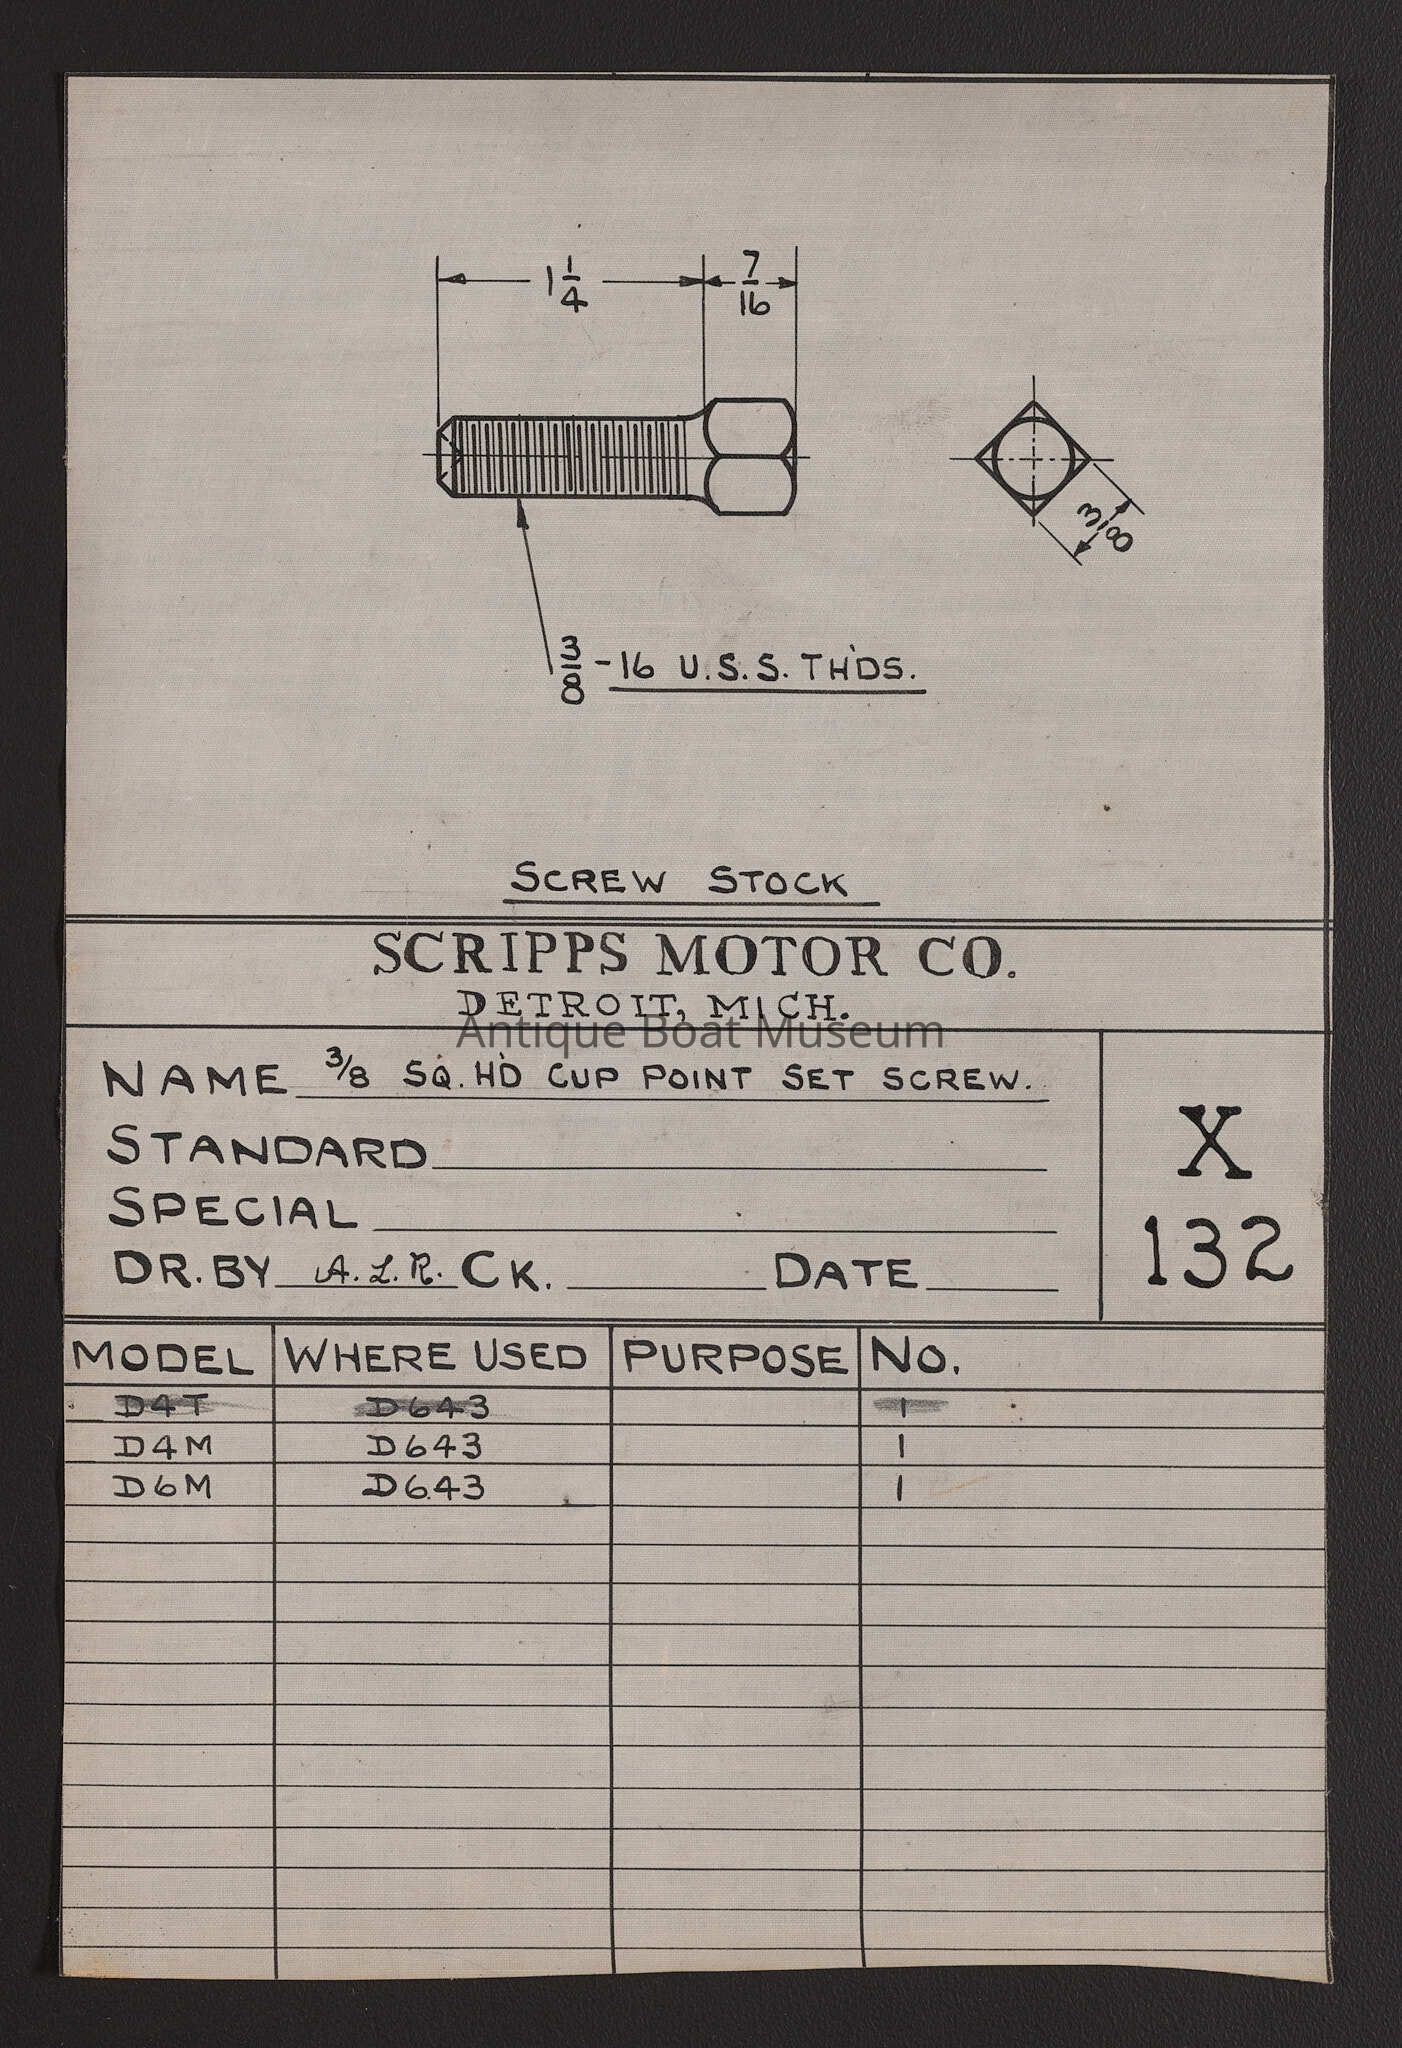 1 1/4 7/16
3/8
3/8 -16 U.S.S. TH'DS.
SCREW STOCK
SCRIPPS MOTOR CO.
DETROIT, MICH.
Antique Boat Museum
NAME 3/8 SQ. H'D CUP POINT SET SCREW.
STANDARD
SPECIAL
DR. BY A.L.R. CK. DATE
X
132
MODEL WHERE USED PURPOSE NO.
D4T D643 1
D4M D643 1
D6M D643 1